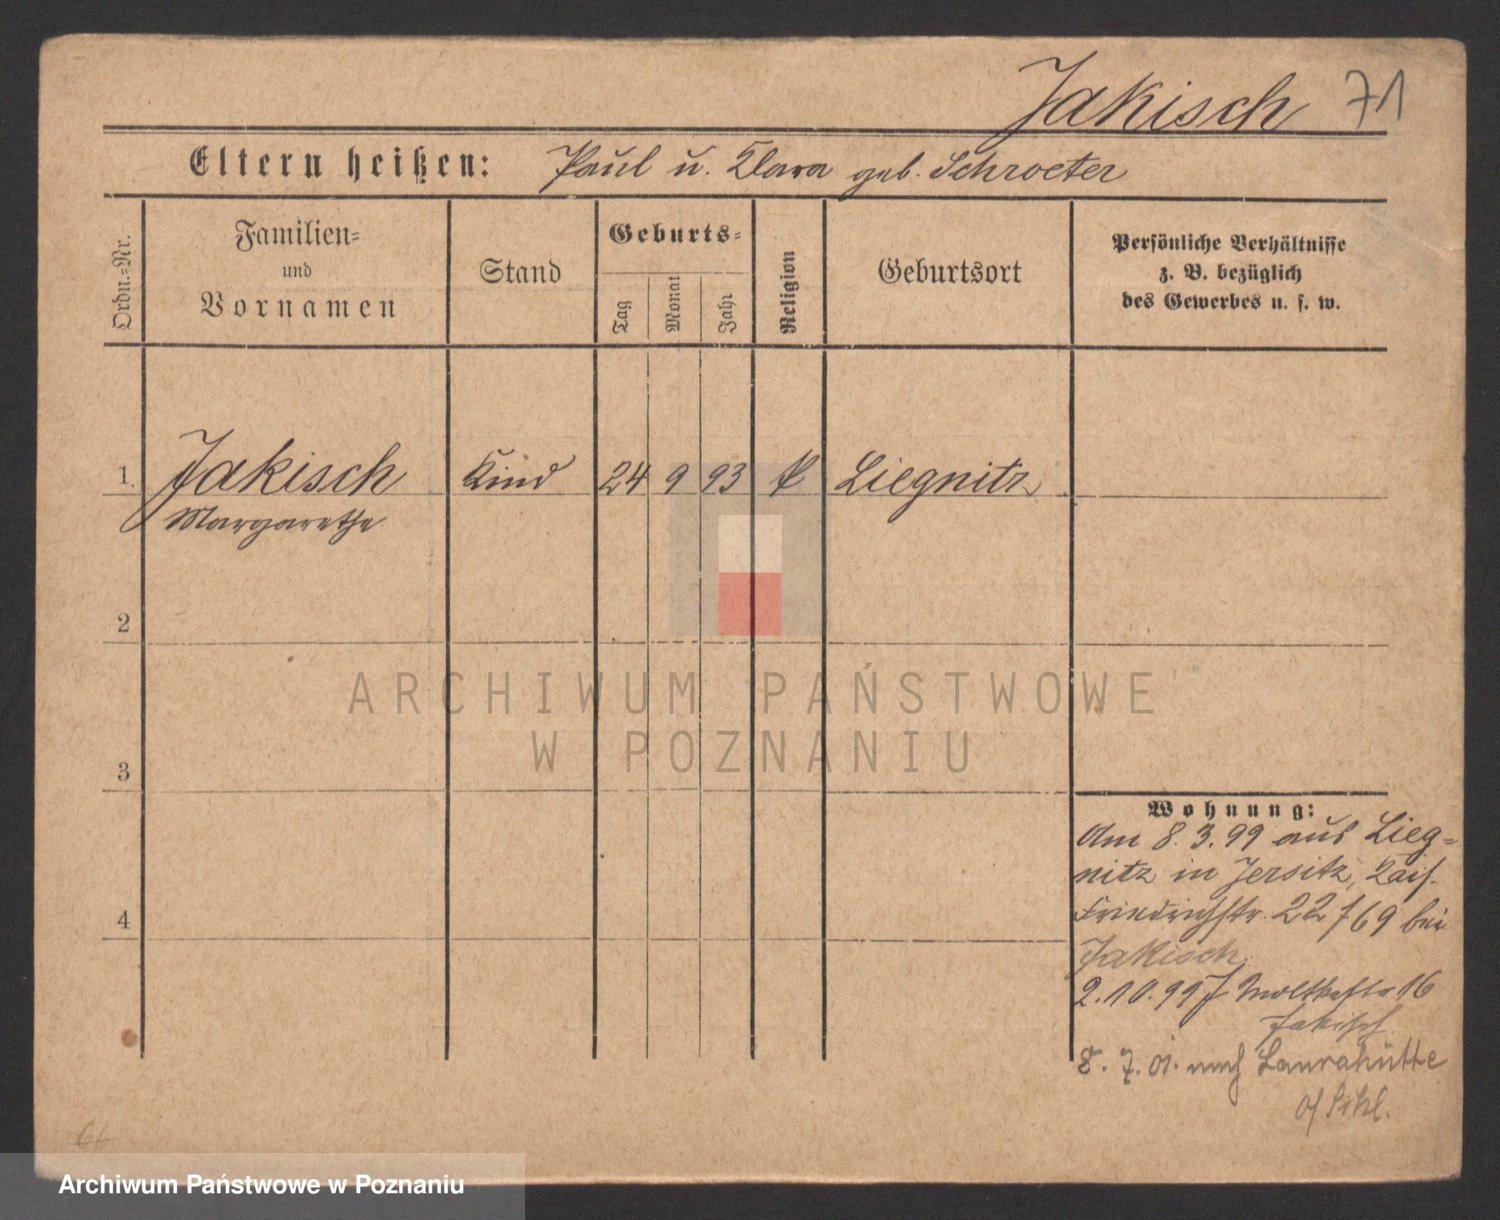 Jakisch 71
Eltern heißen: Paul u. Klara geb. Schroeter
Ordn.=Nr.
Familien=
und
Vornamen
Stand
Geburts=
Tag
Monat
Jahr
Religion
Geburtsort
Persönliche Verhältnisse
z. B. bezüglich
des Gewerbes u. s. w.
1. Jakisch Kind 24 9 93 Liegnitz
Margarethe
2
3
4
Wohnung:
Am 8. 3. 99 aus Lieg=
nitz in Jersitz, Kais.
Friedrichstr. 22 f 69 bei
Jakisch
2. 10. 99 J Moltkestr 16
Jakisch
8. 7. 01. nach Laurahütte
o/ Schl.
66
ARCHIWUM PAŃSTWOWE
W POZNANIU
Archiwum Państwowe w Poznaniu